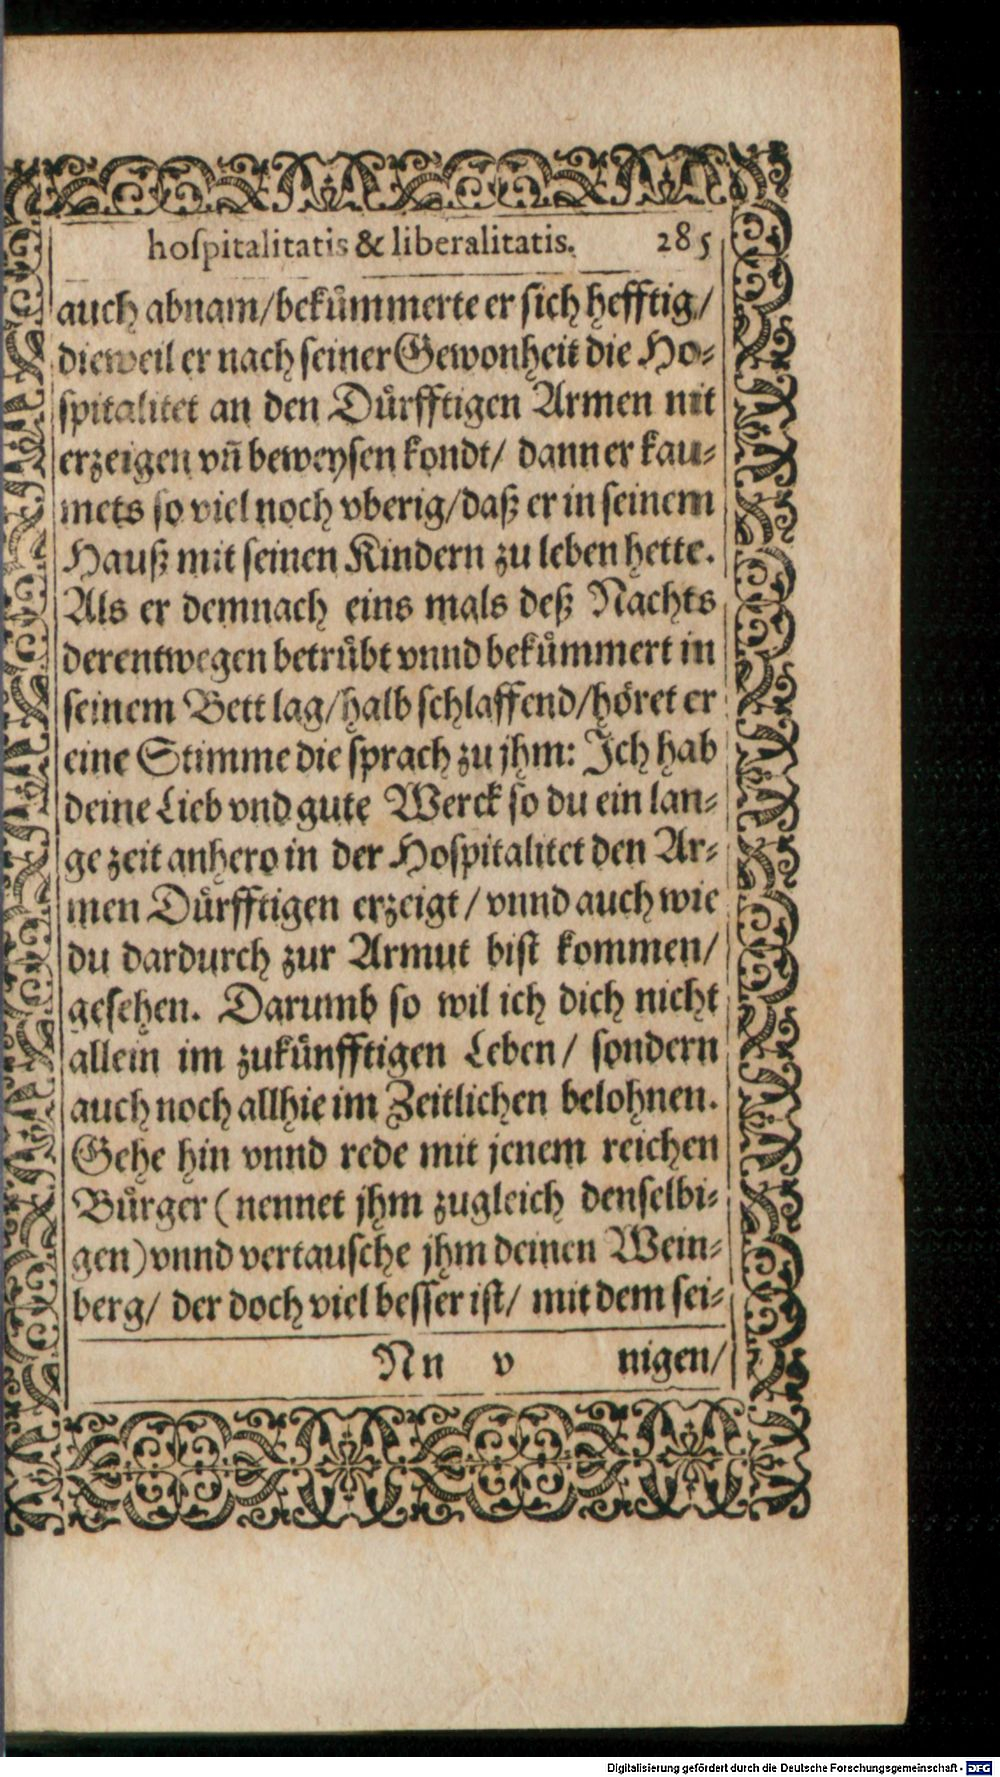 hoſpitalitatis & liberalitatis. 285
auch abnam/bekuͤmmerte er ſich hefftig/
dieweil er nach ſeiner Gewonheit die Ho⸗
ſpitalitet an den Duͤrfftigen Armen nit
erzeigen vñ beweyſen kondt/ dann er kau⸗
mets ſo viel noch vberig/daß er in ſeinem
Hauß mit ſeinen Kindern zu leben hette.
Als er demnach eins mals deß Nachts
derentwegen betruͤbt vnnd bekuͤmmert in
ſeinem Bett lag/halb ſchlaffend/hoͤret er
eine Stimme die ſprach zu jhm: Ich hab
deine Lieb vnd gute Werck ſo du ein lan⸗
ge zeit anhero in der Hoſpitalitet den Ar⸗
men Duͤrfftigen erzeigt/ vnnd auch wie
du dardurch zur Armut biſt kommen/
geſehen. Darumb ſo wil ich dich nicht
allein im zukuͤnfftigen Leben/ ſondern
auch noch allhie im Zeitlichen belohnen.
Gehe hin vnnd rede mit jenem reichen
Buͤrger (nennet jhm zugleich denſelbi⸗
gen) vnnd vertauſche jhm deinen Wein⸗
berg/ der doch viel beſſer iſt/ mit dem ſei⸗
Nn v nigen/
Digitalisierung gefördert durch die Deutsche Forschungsgemeinschaft - DFG